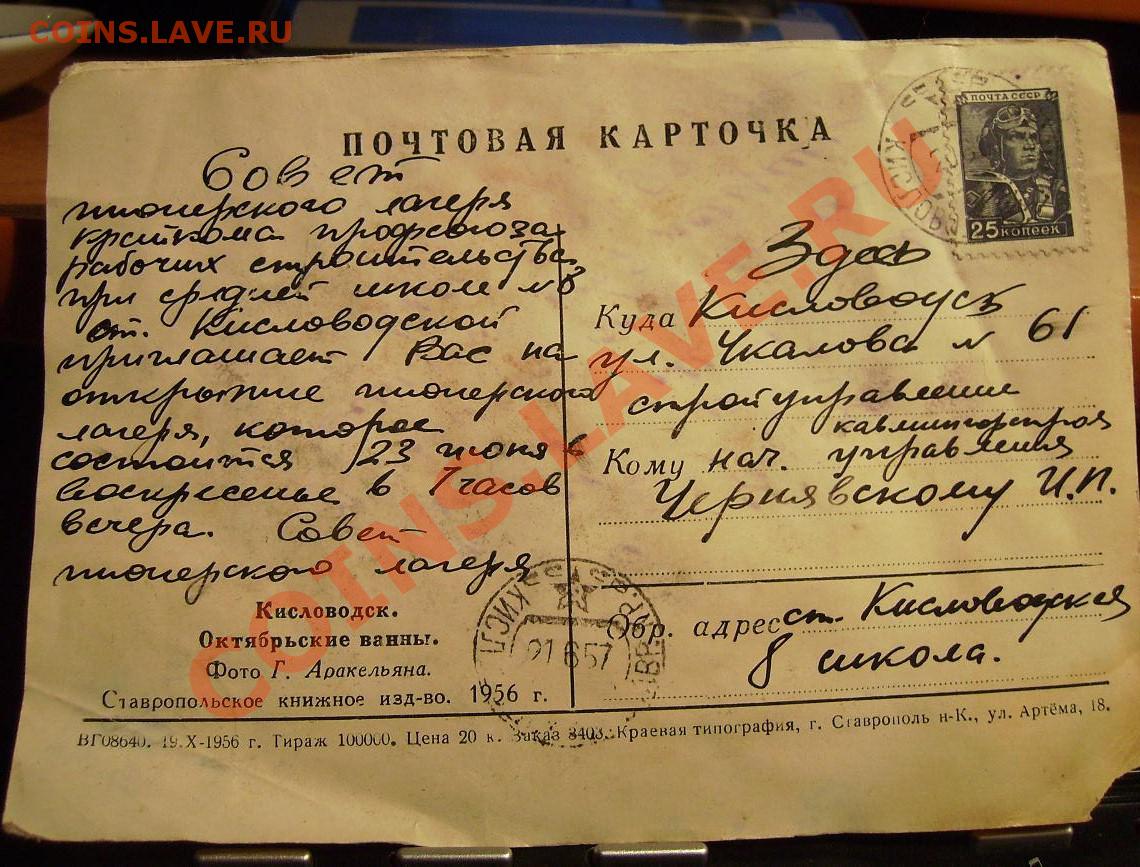 COINS.LAVE.RU
ПОЧТОВАЯ КАРТОЧКА
ПОЧТА СССР
25 КОПЕЕК
Совет
пионерского лагеря
крайкома профсоюза
рабочих строительства
при средней школе №8
ст. Кисловодской
приглашает Вас на
открытие пионерского
лагеря, которое
состоится 23 июня в
воскресенье в 7 часов
вечера. Совет
пионерского лагеря
Кисловодск.
Октябрьские ванны.
Фото Г. Аракельяна.
Ставропольское книжное изд-во. 1956 г.
Здесь
Куда Кисловодск
ул. Чкалова № 61
стройуправление
кавминкурстроя
Кому нач. управления
Чернявскому И.П.
Обр. адрес ст. Кисловодская
8 школа.
21 6 57
ВГ08640. 19.X-1956 г. Тираж 100000. Цена 20 к. Заказ 8403. Краевая типография, г. Ставрополь н-К., ул. Артёма, 18.
COINS.LAVE.RU